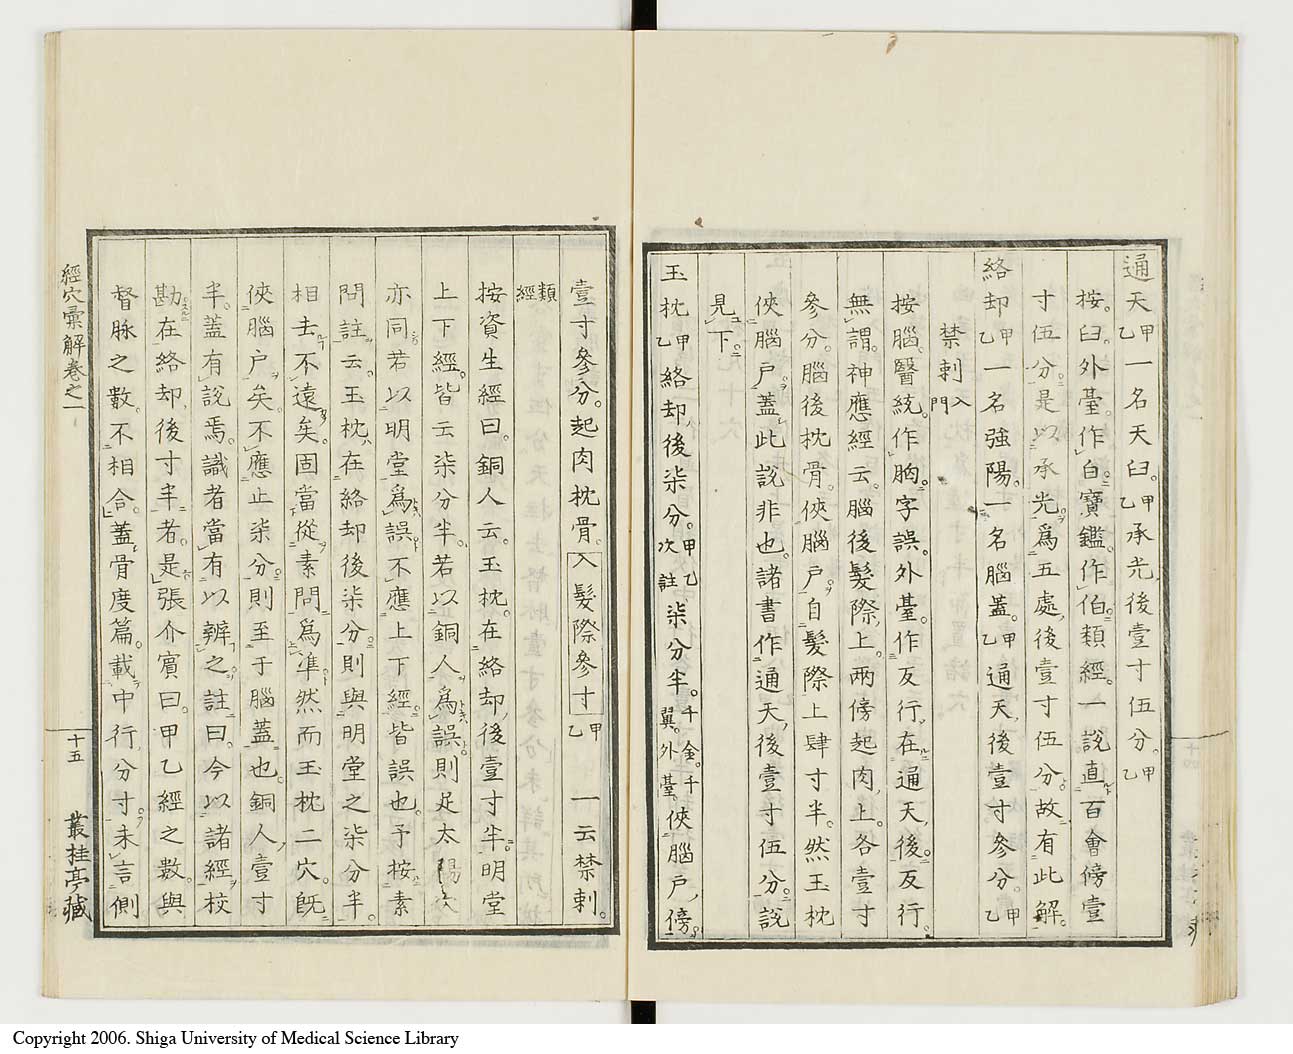 通天甲乙一名天臼。甲乙承光後壹寸伍分。甲乙
按。臼。外臺。作白。寶鑑。作伯。類經。一說直百會傍壹
寸伍分。是以承光。爲五處後壹寸伍分。故有此解。
絡却甲乙一名強陽。一名腦蓋。甲乙通天後壹寸參分。甲乙
禁刺入門
按腦。醫統。作胸。字誤。外臺。作反行。在通天後。反行。
無謂。神應經云。腦後髮際上。兩傍起肉上。各壹寸
參分。腦後枕骨。俠腦戶。自髮際上肆寸半。然玉枕
俠腦戶。蓋此說非也。諸書作通天後壹寸伍分。說
見下。
玉枕甲乙絡却後柒分。甲乙次註柒分半。千金。千翼。外臺。俠腦戶傍。
壹寸參分。起肉枕骨。入髮際參寸甲乙一云禁刺。
類經
按資生經曰。銅人云。玉枕。在絡却後壹寸半。明堂
上下經。皆云柒分半。若以銅人爲誤。則足太陽穴
亦同。若以明堂爲誤。不應上下經皆誤也。予按素
問註云。玉枕。在絡却後柒分。則與明堂之柒分半。
相去不遠矣。固當從素問爲準。然而玉枕二穴。旣
俠腦戶矣。不應止柒分。則至于腦蓋也。銅人壹寸
半。蓋有說焉。識者當有以辨之。註曰。今以諸經校
勘。在絡却後寸半者。是。張介賓曰。甲乙經之數與
督脉之數。不相合。蓋骨度篇。載中行分寸。未言側
經穴彙解卷之一
十五
叢桂亭藏
Copyright 2006. Shiga University of Medical Science Library